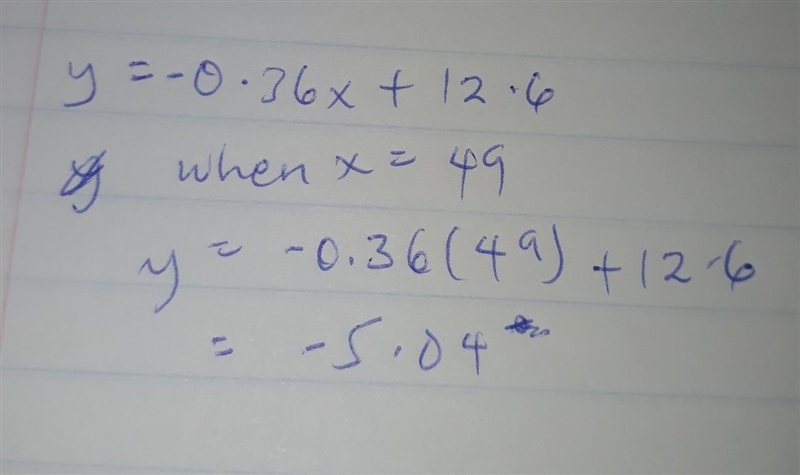 y = -0.36x + 12.6
when x = 49
y = -0.36(49) + 12.6
= -5.04